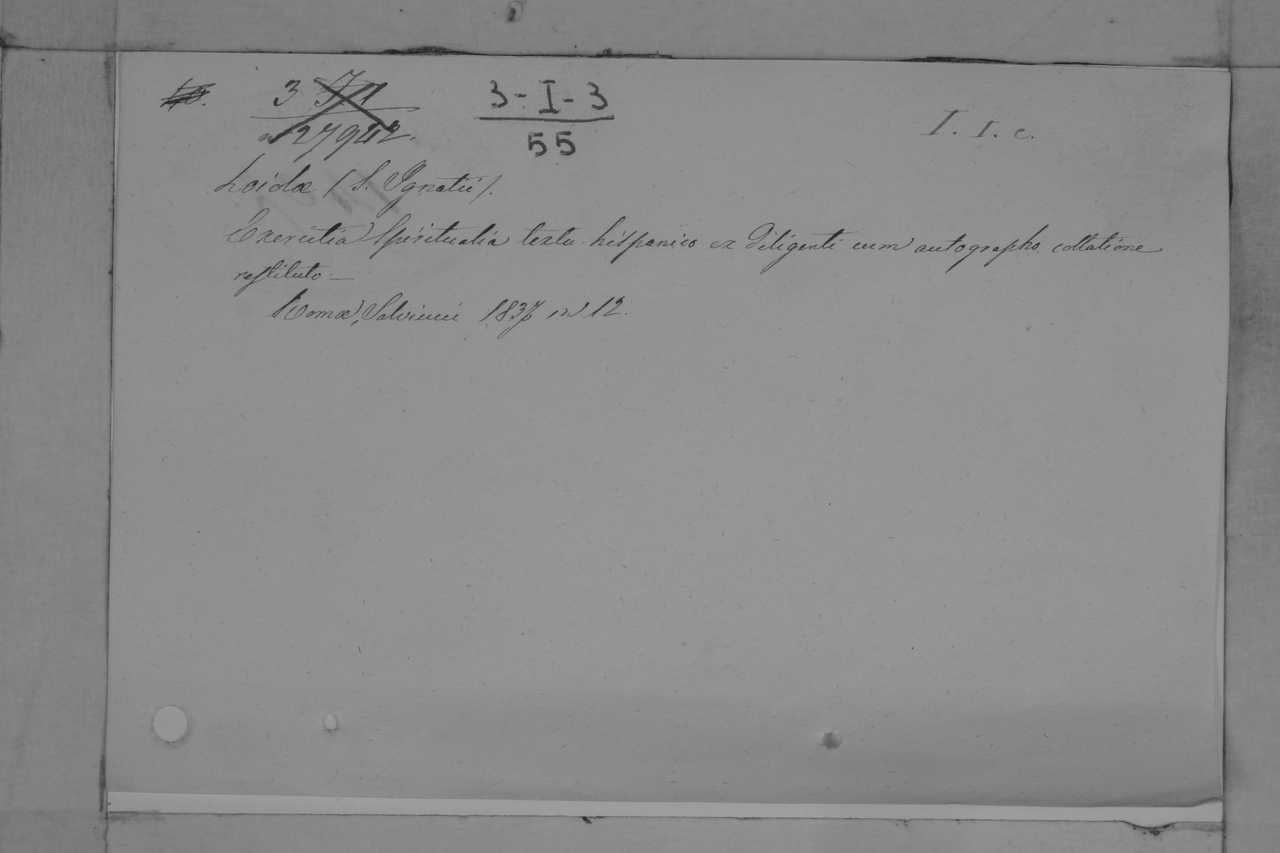 3 3-I-3 I. I. c.
27942. 55
Loidæ (S. Ignatii).
Exercitia Spiritualia textu hispanico ex diligenti cum autographo collatione
restituto —
Romæ, Salviucci 1837 in 12.